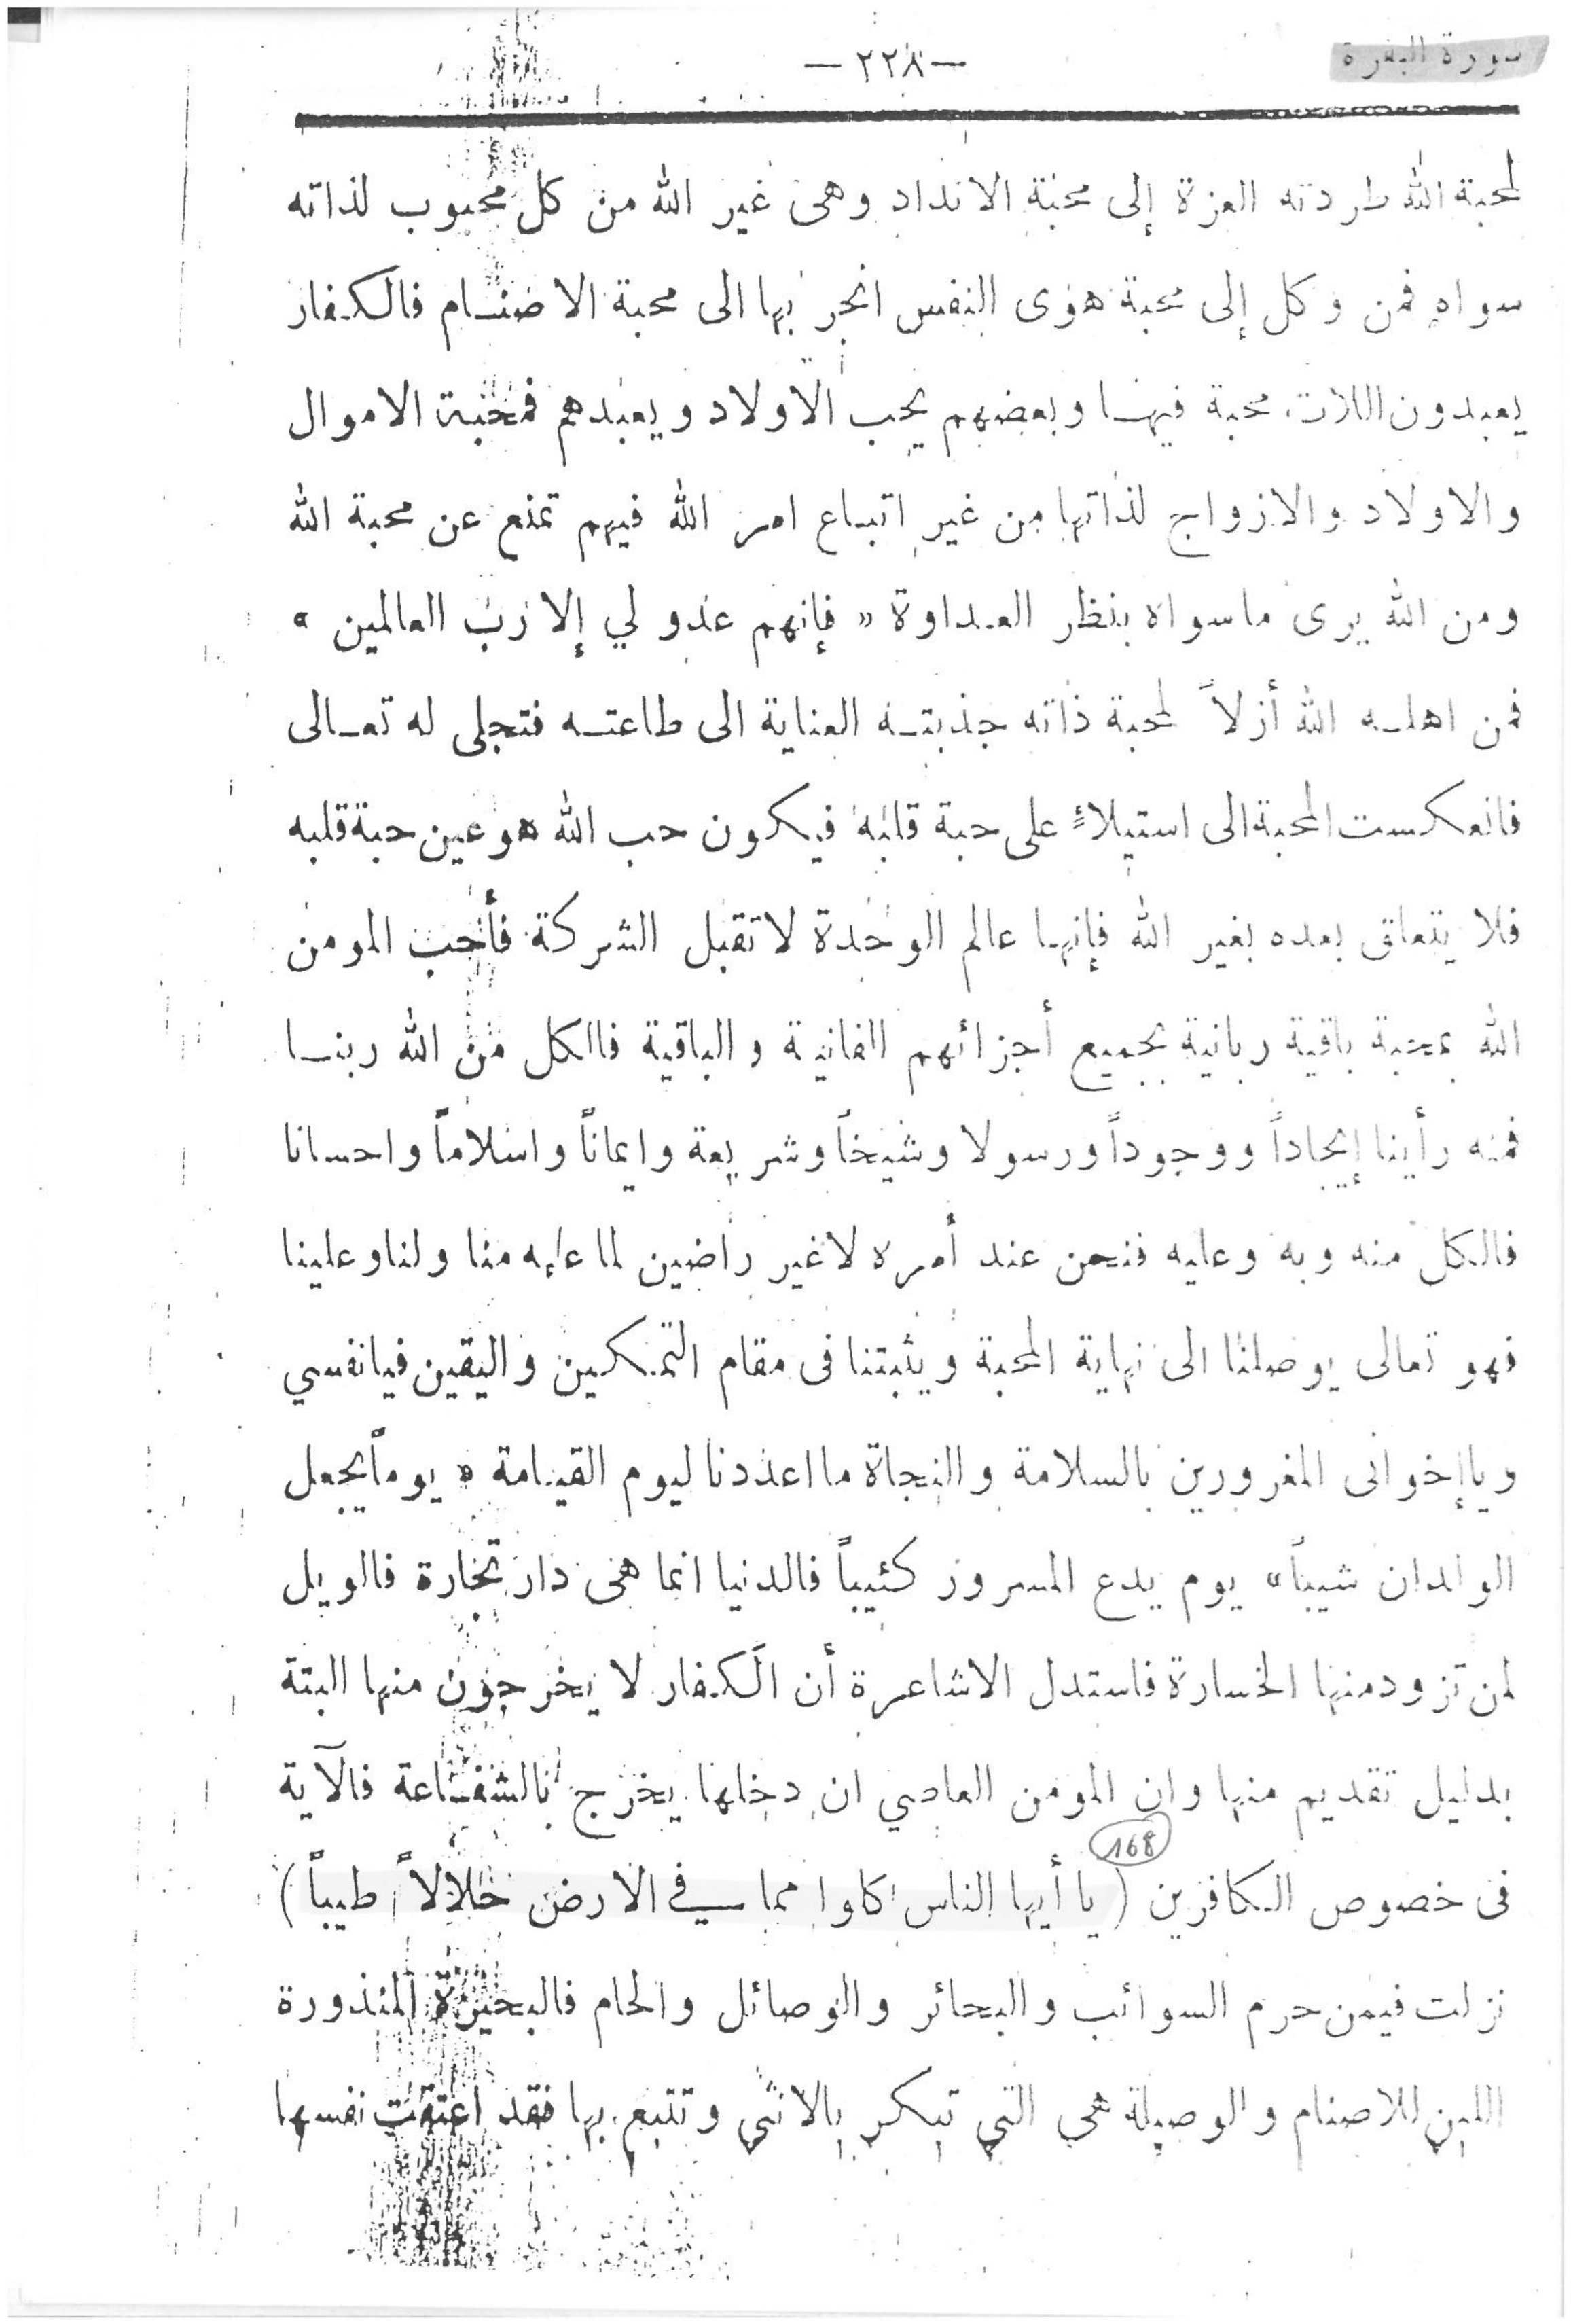 سورة البقرة
— ٢٢٨ —
لمحبة الله طردته العزة إلى محبة الانداد وهى غير الله من كل محبوب لذاته
سواه فمن وكل إلى محبة هوى النفس انجر بها الى محبة الاصنام فالكفار
يعبدون اللات محبة فيها وبعضهم يحب الأولاد ويعبدهم فمحبة الاموال
والاولاد والازواج لذاتها من غير اتباع امر الله فيهم تمنع عن محبة الله
ومن الله يرى ماسواه بنظر العداوة « فإنهم عدو لي إلا رب العالمين »
فمن اهله الله أزلاً لمحبة ذاته جذبته العناية الى طاعته فتجلى له تعالى
فانعكست المحبة الى استيلاءً على حبة قلبه فيكون حب الله هو عين حبة قلبه
فلا يتعلق بعده بغير الله فإنها عالم الوحدة لا تقبل الشركة فأحب المومن
الله بمحبة باقية ربانية بجميع أجزائهم الفانية والباقية فالكل من الله ربنا
فمنه رأينا إيجاداً ووجوداً ورسولا وشيخاً وشريعة وايماناً واسلاماً واحسانا
فالكل منه وبه وعليه فنحن عند أمره لاغير راضين لما عليه منا ولنا وعلينا
فهو تعالى يوصلنا الى نهاية المحبة ويثبتنا فى مقام التمكين واليقين فيانفسي
وياإخوانى المغرورين بالسلامة والنجاة ما اعددنا ليوم القيامة « يوماً يجعل
الولدان شيباً » يوم يدع المسرور كئيباً فالدنيا انما هى دار تجارة فالويل
لمن تزود منها الخسارة فاستدل الاشاعرة أن الكفار لا يخرجون منها البتة
بدليل تقديم منها وان المومن العاصي ان دخلها يخرج بالشفاعة فالآية
168
فى خصوص الكافرين ( يا أيها الناس كلوا مما في الارض حلالاً طيباً )
نزلت فيمن حرم السوائب والبحائر والوصائل والحام فالبحيرة المنذورة
اللبن للاصنام والوصيلة هي التي تبكر بالانثى وتتبع بها فقد اعتقت نفسها